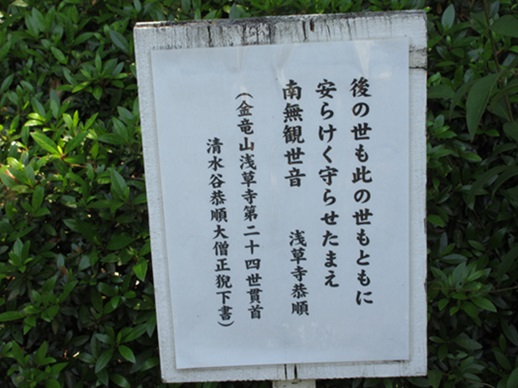 後の世も此の世もともに
安らけく守らせたまえ
南無観世音　浅草寺恭順
（金竜山浅草寺第二十四世貫首
清水谷恭順大僧正猊下書）